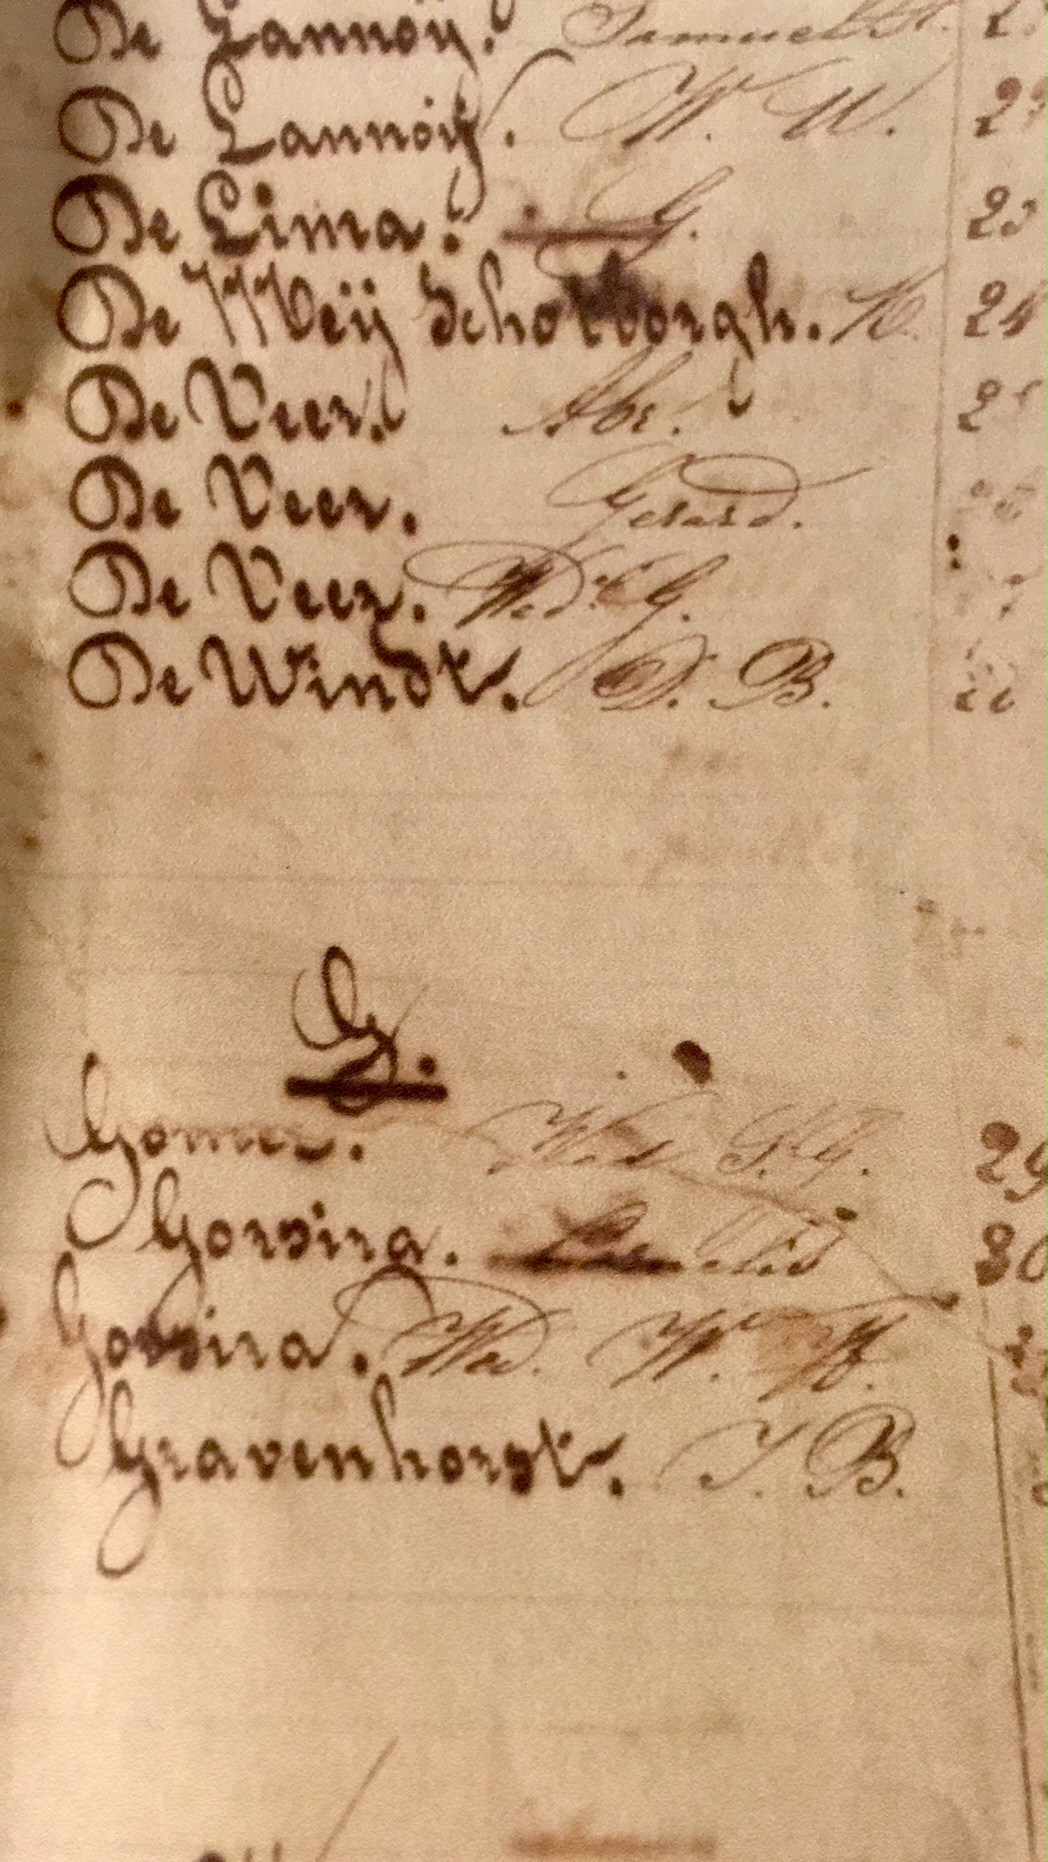 De Lannoÿ. Samuel
De Lannoÿ. W. W. 23
De Lima. G. 23
De Meÿ Schotborgh. 24
De Veer. Abr. 2
De Veer. Gerard.
De Veer. Wed. G.
De Windt. D. B.
G.
Gomez. Wed. 29
Gorsira. 30
Gorsira. Wed. W.
Gravenhorst. J. B.